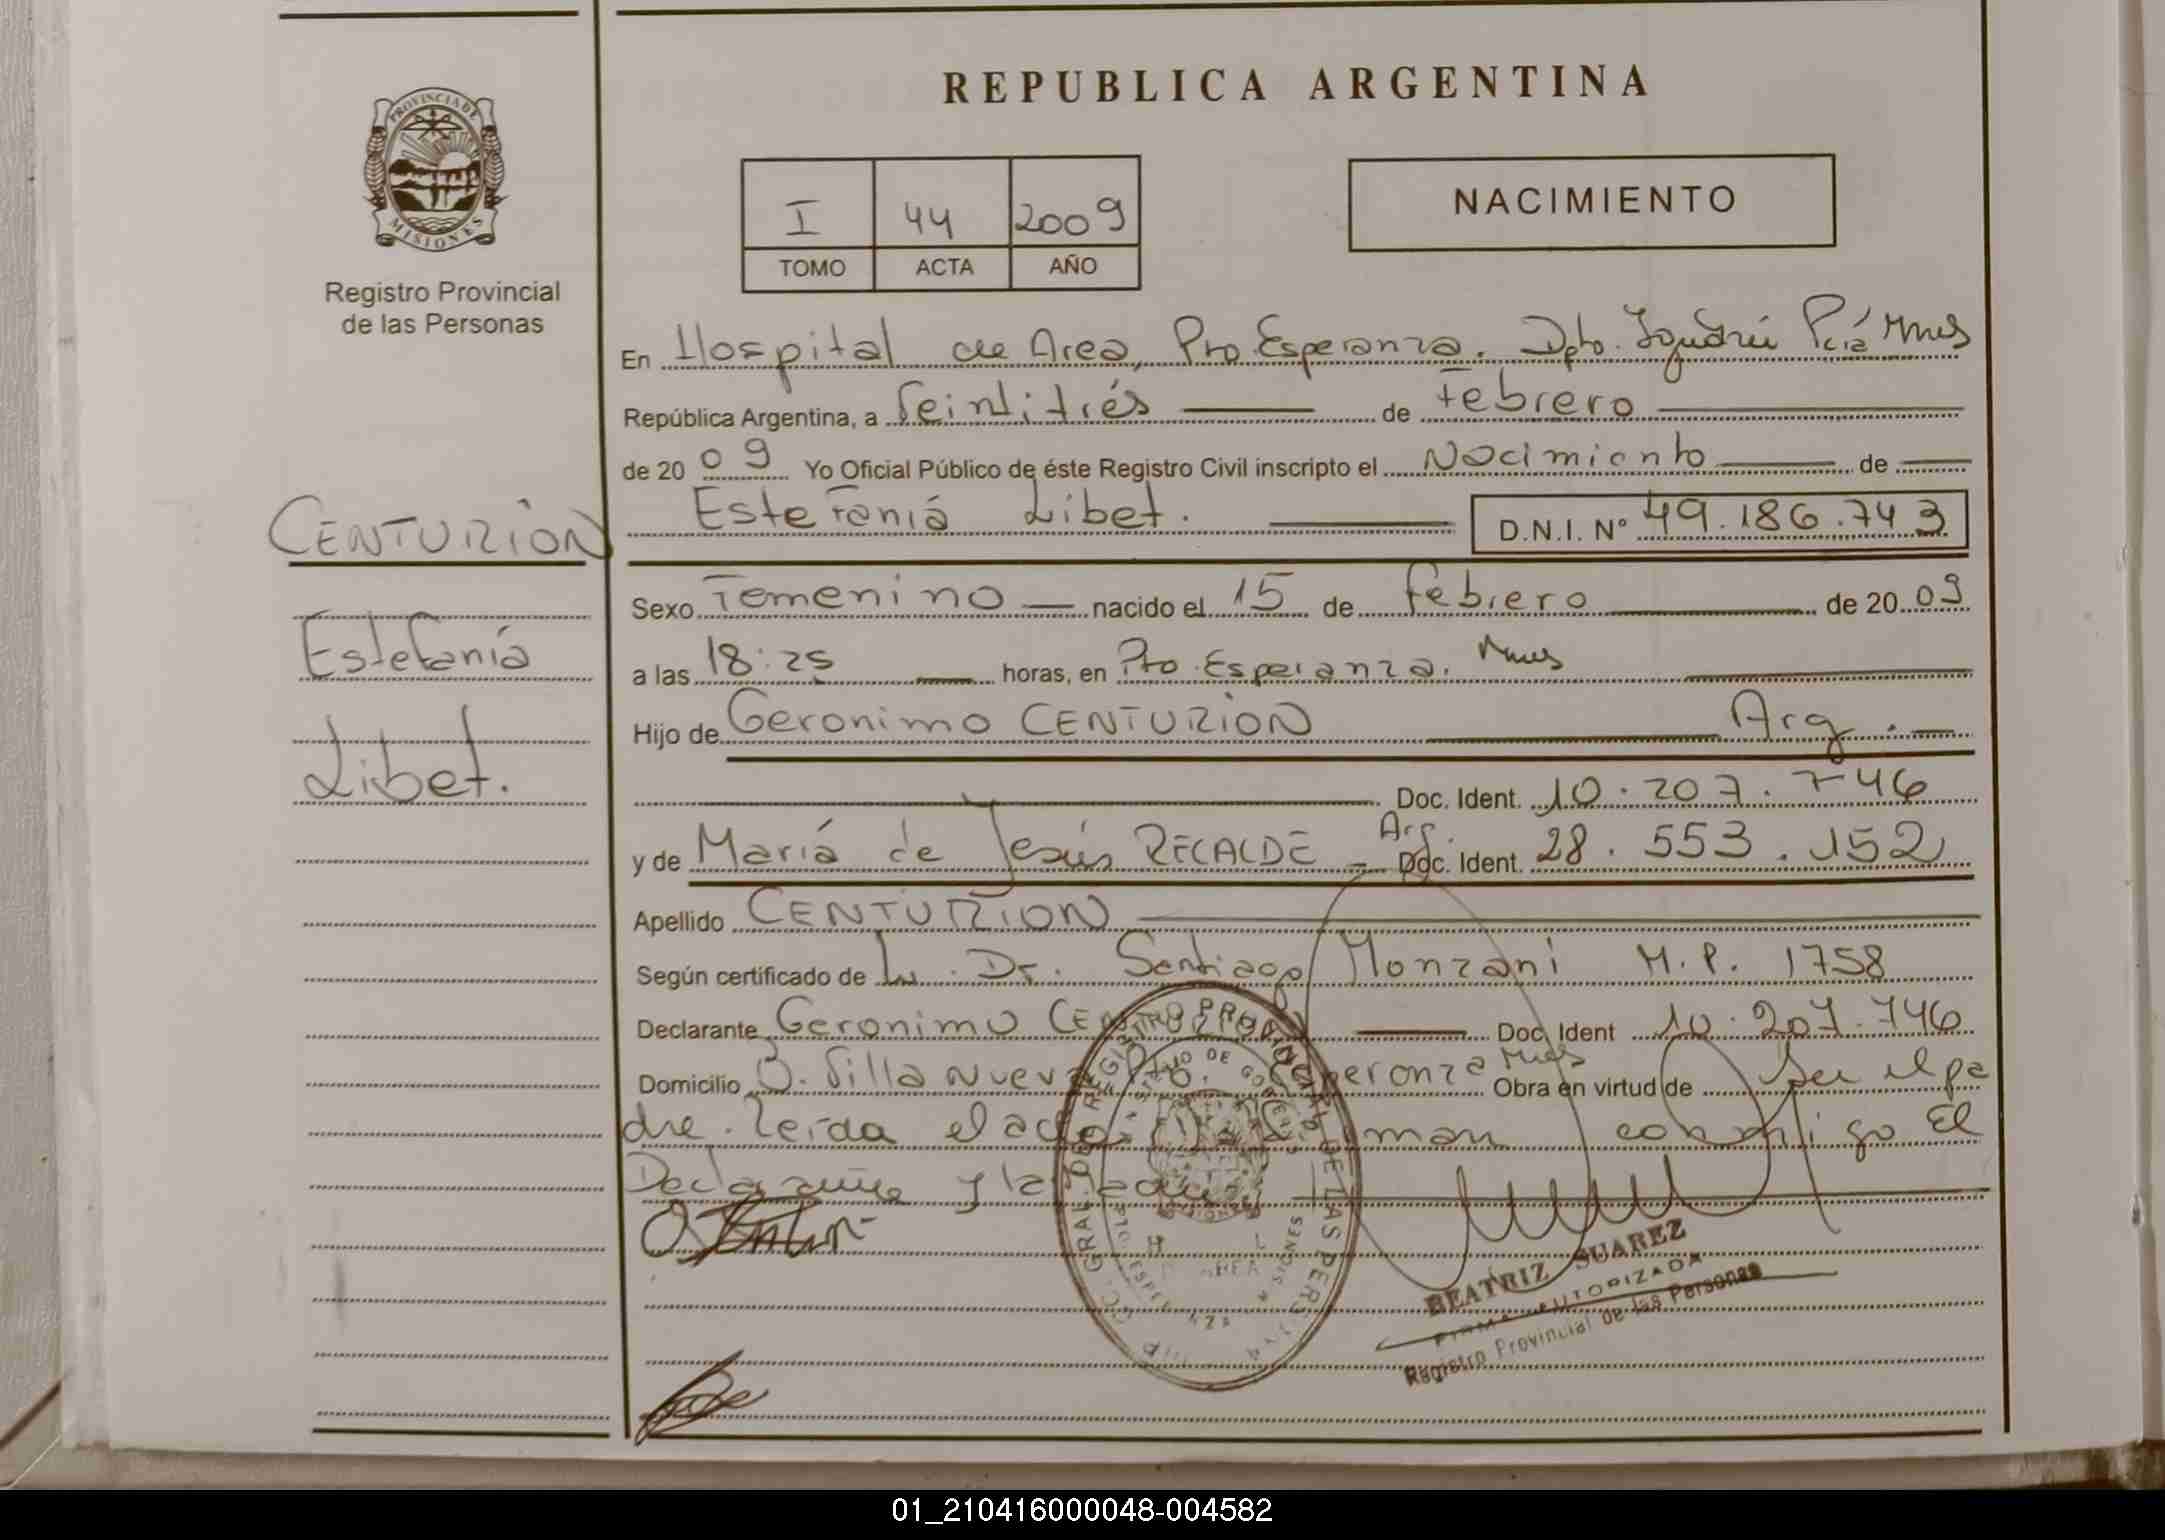 REPUBLICA ARGENTINA
PROVINCIA DE
MISIONES
Registro Provincial
de las Personas
I 44 2009
TOMO ACTA AÑO
NACIMIENTO
En Hospital de Area, Pto Esperanza. Dpto. Iguazú Pcia Mnes
República Argentina, a Veintitrés de Febrero
de 2009 Yo Oficial Público de éste Registro Civil inscripto el Nacimiento de
Estefanía Libet. D.N.I. Nº 49.186.743
CENTURION
Estefanía
Libet.
Sexo Femenino nacido el 15 de Febrero de 2009
a las 18:25 horas, en Pto. Esperanza. Mnes
Hijo de Geronimo CENTURION Arg.
Doc. Ident. 10.207.746
y de María de Jesús RECALDE Arg. Doc. Ident. 28.553.152
Apellido CENTURION
Según certificado de Dr. Santiago Monzani M.P. 1758
Declarante Geronimo Doc. Ident 10.207.746
Domicilio B. Villa Nueva Pto. Esperanza Mnes Obra en virtud de Ser el pa
dre. Leida el acta conmigo El
Declarante y la
BEATRIZ SUAREZ
FIRMA AUTORIZADA
Registro Provincial de las Personas
01_210416000048-004582